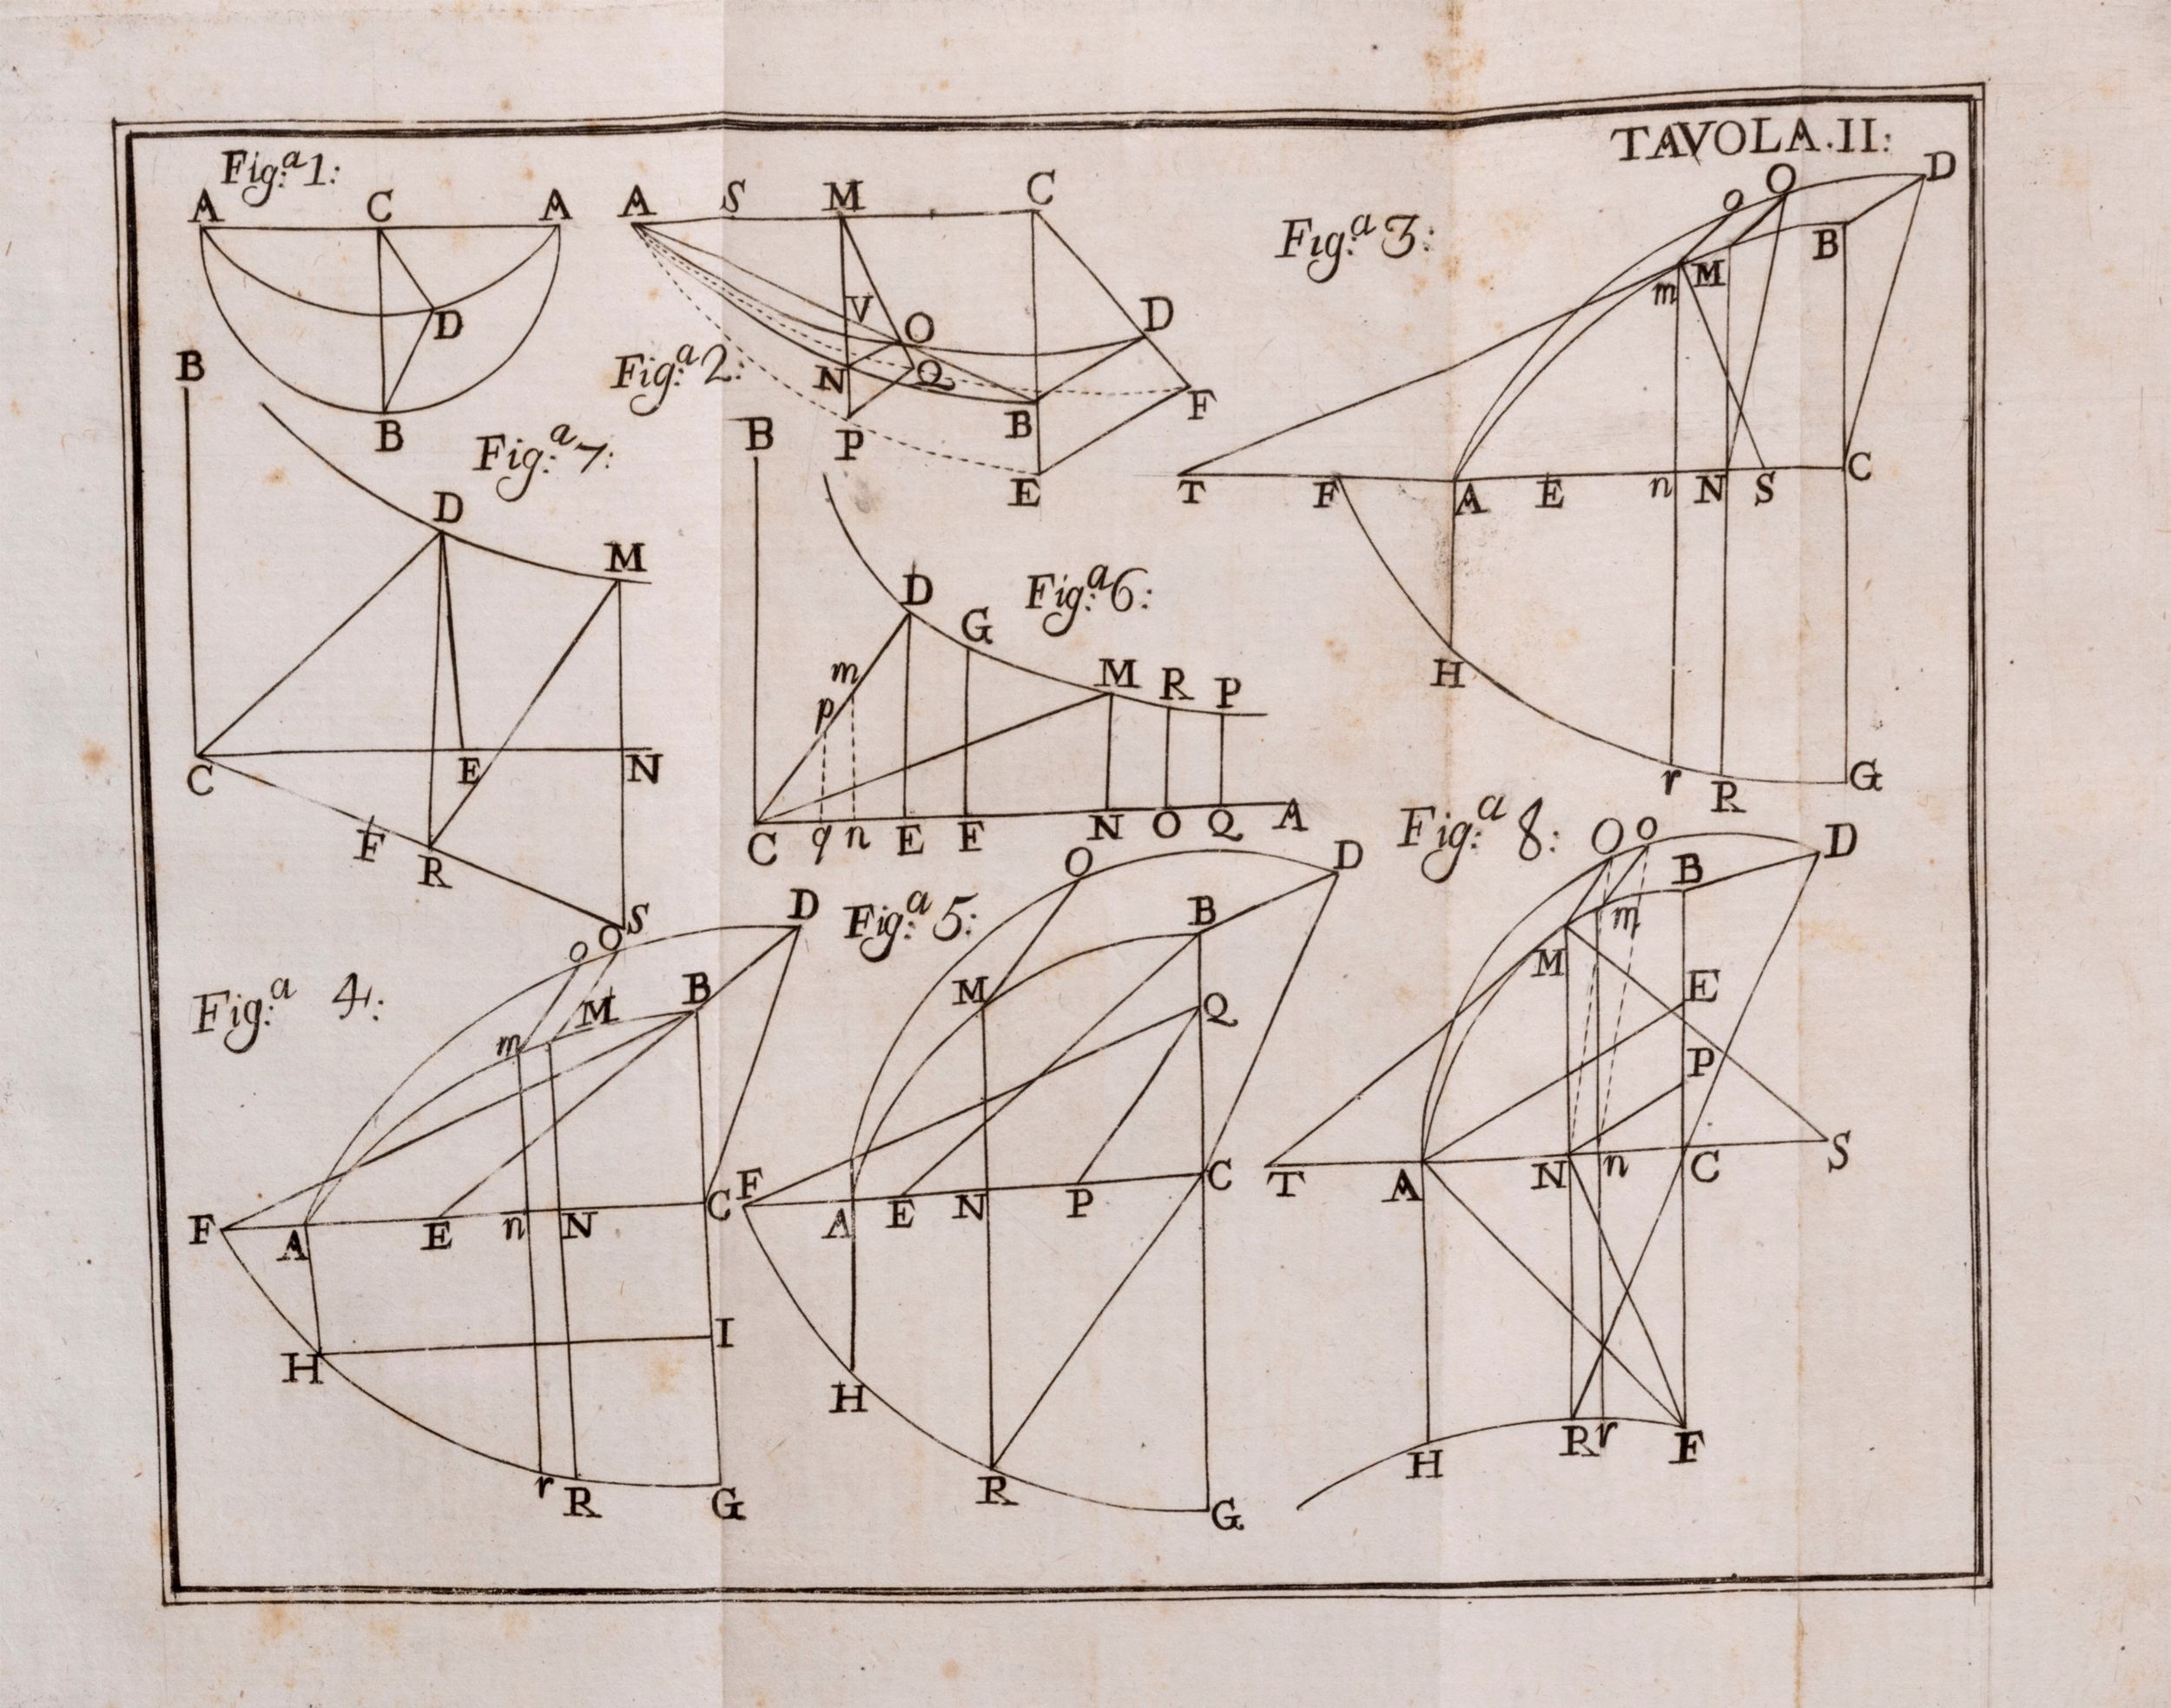 TAVOLA.II:
Fig:a 1:
A C A
D
B
Fig:a 2:
A S M C
V O D
N Q
B F
P
E
Fig:a 3:
o O D
m M B
T F A E n N S C
H
r R G
Fig:a 7:
B
D
M
C E N
F
R
S
Fig:a 6:
B
D
G
m M R P
p
C q n E F N O Q A
Fig:a 4:
o O D
m M B
F A E n N C
H I
r R G
Fig:a 5:
O D
B
M Q
F A E N P C
H
R G
Fig:a 8:
O o D
B
m
M E
P
T A N n C S
H R r F